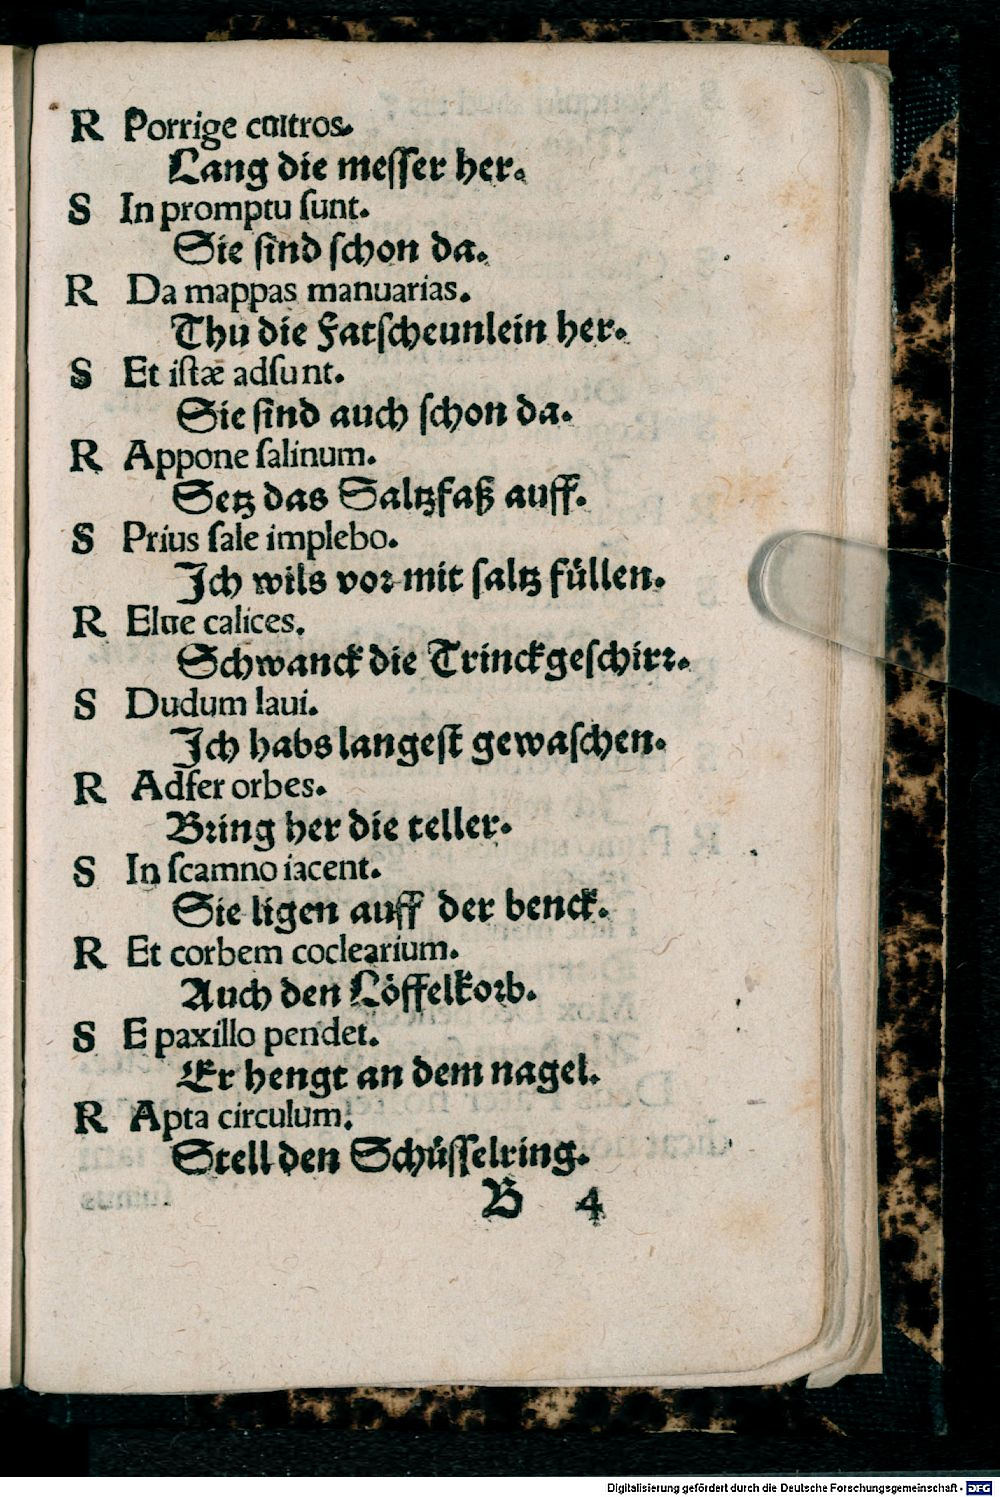 R Porrige cultros.
Lang die messer her.
S In promptu ſunt.
Sie ſind ſchon da.
R Da mappas manuarias.
Thu die Fatſcheunlein her.
S Et iſtæ adſunt.
Sie ſind auch ſchon da.
R Appone ſalinum.
Setz das Saltzfaß auff.
S Prius ſale implebo.
Ich wils vor mit ſaltz füllen.
R Elue calices.
Schwanck die Trinckgeſchirr.
S Dudum laui.
Ich habs langeſt gewaſchen.
R Adfer orbes.
Bring her die teller.
S In ſcamno iacent.
Sie ligen auff der benck.
R Et corbem coclearium.
Auch den Löffelkorb.
S E paxillo pendet.
Er hengt an dem nagel.
R Apta circulum.
Stell den Schüſſelring.
B 4
Digitalisierung gefördert durch die Deutsche Forschungsgemeinschaft - DFG